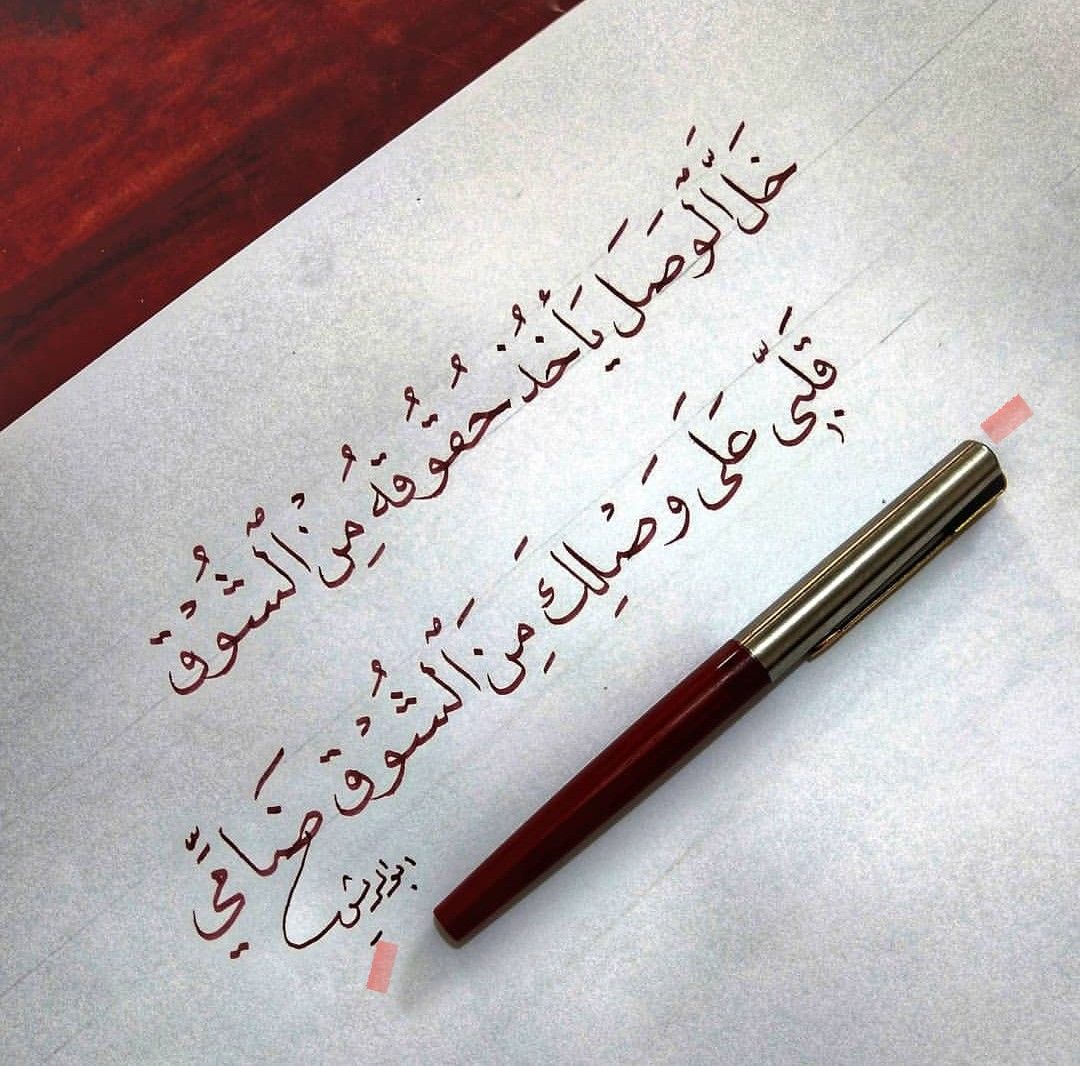 خَلَ الَّوَصَل يَأخُذ حُقُوقهُ مِنْ الّشُوْق
قَلبِّى عَلَى وَصْلِكَ مِنَ الّشُوْق ضَامِّي
ابوالريش